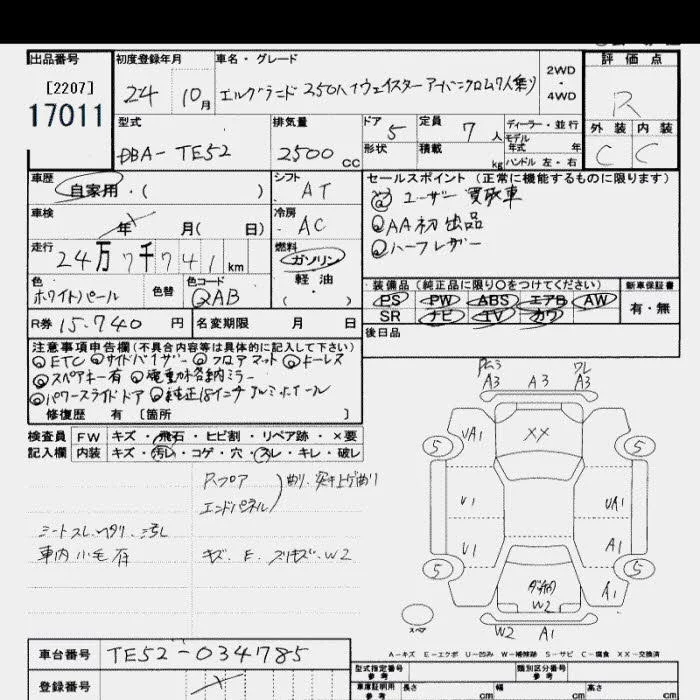 出品番号
[2207]
17011
初度登録年月
24 10月
車名・グレード
エルグランド 350ハイウェイスター アーバンクロム 7人乗り
2WD
・
4WD
評価点
R
外装 内装
C C
型式
DBA-TE52
排気量
2500CC
ドア 5
形状
定員 7人
積載 kg
ディーラー・並行
モデル年式 年
ハンドル 左・右
車歴
自家用・( )
車検
年 月( 日)
走行
24万7千741km
色
ホワイトパール
色替
色コード
QAB
シフト
AT
冷房
AC
燃料
ガソリン
軽油
・
( )
R券 15.740円
名変期限 月 日
セールスポイント (正常に機能するものに限ります)
ユーザー買取車
AA初出品
ハーフレザー
装備品(純正品に限り○をつけてください)
PS PW ABS エアB AW
SR ナビ TV カワ
新車保証書
有・無
後日品
注意事項申告欄(不具合内容等は具体的に記入して下さい)
ETC サイドバイザー フロアマット キーレス
スペアキー有 電動格納ミラー
パワースライドドア 純正18インチアルミホイール
修復歴 有 [箇所 ]
検査員記入欄
FW キズ・飛石・ヒビ割・リペア跡・×要
内装 キズ・汚レ・コゲ・穴・スレ・キレ・破レ
Rフロア
エンドパネル
曲り、突き上げ曲り
シートスレ、ヘタリ、汚レ
車内小毛有
キズ.E.スリキズ.W2
A3 A3 A3
UA1 XX
5 5
U1 UA1
U1 A1
5 5
A1
W2
W2 A1
スペア
A-キズ E-エクボ U-凹み W-補修跡 S-サビ C-腐食 XX-交換済
車台番号 TE52-034785
登録番号
型式指定番号
参考
類別区分番号
参考
車庫証明用
参考
長さ cm
幅 cm
高さ cm